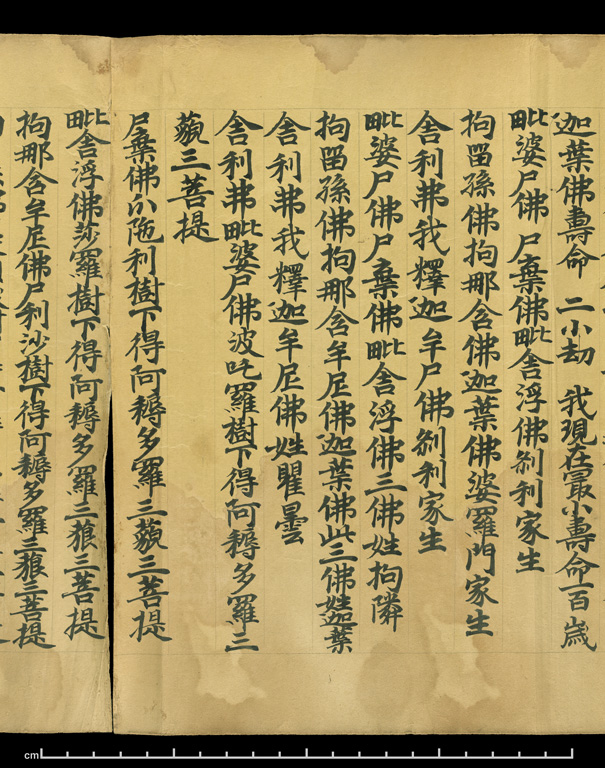 迦葉佛壽命 二小劫 我現在寂小壽命一百歲
毗婆尸佛 尸棄佛毗舍浮佛刹利家生
拘留孫佛拘那含佛迦葉佛婆羅門家生
舍利弗我釋迦牟尸佛刹利家生
毗婆尸佛尸棄佛毗舍浮佛三佛姓拘隣
拘留孫佛拘那含牟尼佛迦葉佛此三佛姓迦葉
舍利弗我釋迦牟尼佛姓瞿曇
舍利弗毗婆尸佛波吒羅樹下得阿耨多羅三
藐三菩提
尸棄佛尒陁利樹下得阿耨多羅三藐三菩提
毗舍浮佛莎羅樹下得阿耨多羅三狼三菩提
拘那含牟尼佛尸利沙樹下得阿耨多羅三狼三菩提